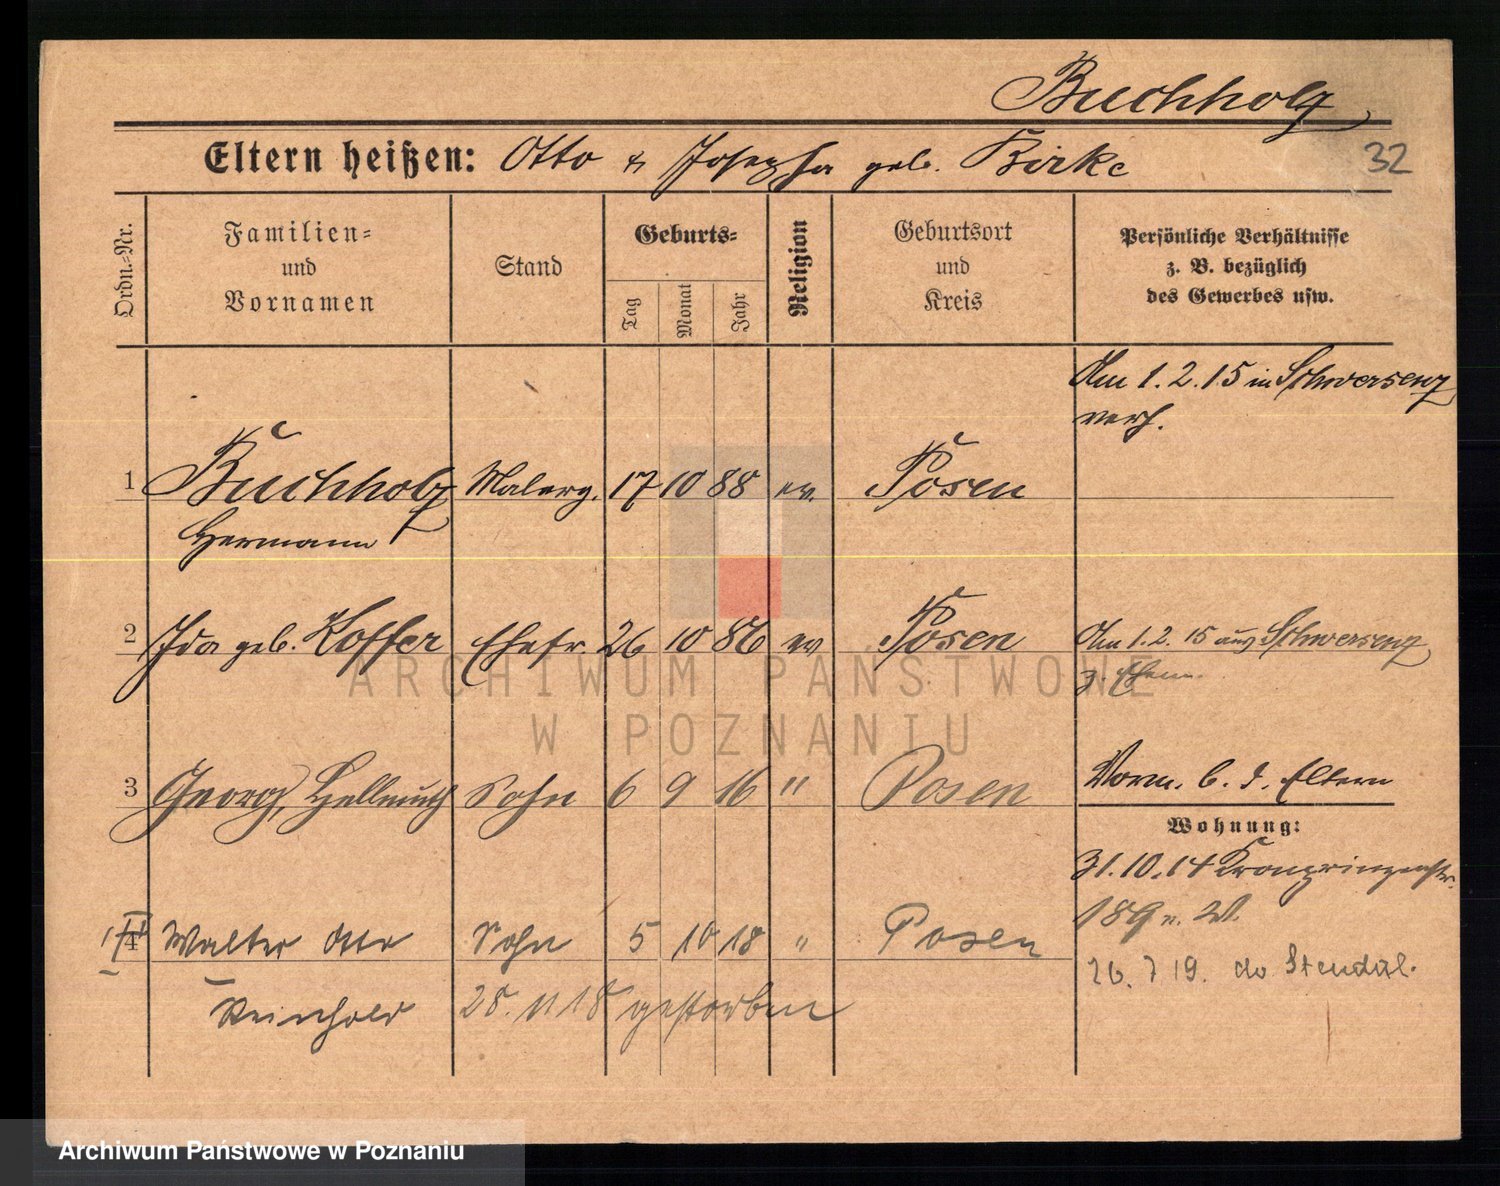 Buchholz
Eltern heißen: Otto & Josepha geb. Birke
32
Ordn.-Nr.
Familien-
und
Vornamen
Stand
Geburts-
Tag
Monat
Jahr
Religion
Geburtsort
und
Kreis
Persönliche Verhältnisse
z. B. bezüglich
des Gewerbes usw.
Am 1.2.15 in Schwersenz
verh.
1 Buchholz Malerg. 17 10 88 ev. Posen
Hermann
2 Ida geb. Koffer Ehefr. 26 10 86 ev Posen Am 1.2.15 aus Schwersenz
z. Ehem.
3 Georg, Hellmuth Sohn 6 9 16 " Posen Vorm. b. d. Eltern
Wohnung:
31.10.14 Kronprinzenstr.
189 n. W.
4 Walter Otto Sohn 5 10 18 " Posen
26. 7 19. do Stendal.
Reinhold 28. 11 18 gestorben
ARCHIWUM PAŃSTWOWE
W POZNANIU
Archiwum Państwowe w Poznaniu